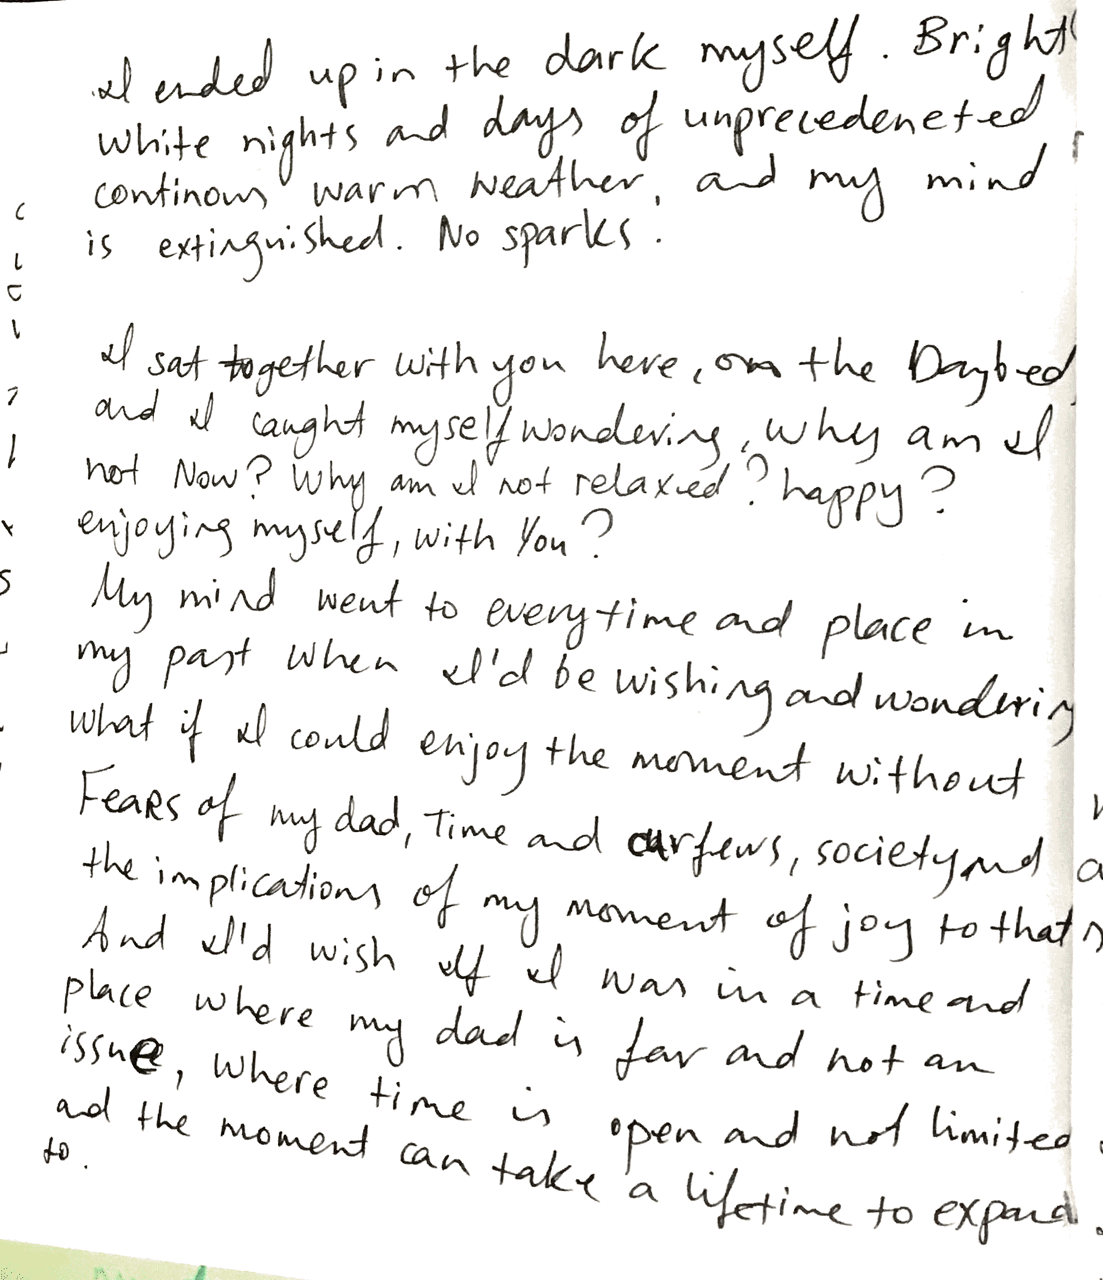 I ended up in the dark myself. Bright
white nights and days of unprecedeneted
continous warm weather, and my mind
is extinguished. No sparks.
I sat together with you here, on the Daybed,
and I caught myself wondering, why am I
not Now? Why am I not relaxed? happy?
enjoying myself, with You?
My mind went to every time and place in
my past when I'd be wishing and wondering
what if I could enjoy the moment without
Fears of my dad, Time and curfews, society and
the implications of my moment of joy to that
And I'd wish If I was in a time and
place where my dad is far and not an
issue, where time is open and not limited
and the moment can take a lifetime to expand
to.